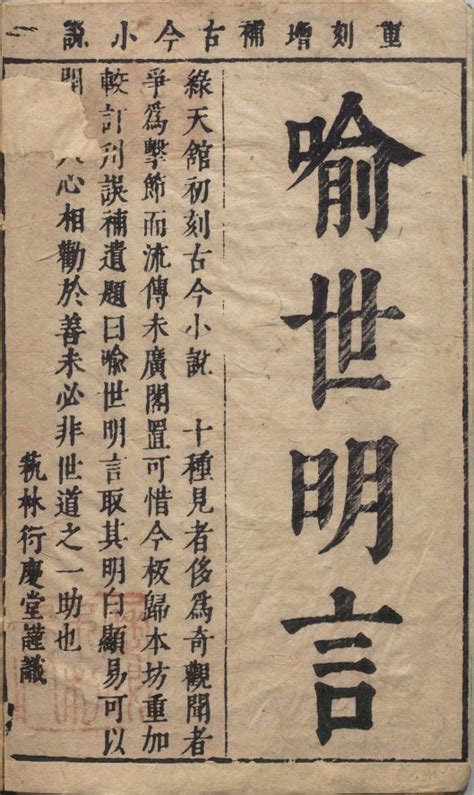 重刻增補古今小說
喻世明言
綠天館初刻古今小說 十種見者侈爲奇觀聞者
爭爲擊節而流傳未廣閣置可惜今板歸本坊重加
較訂刊誤補遺題曰喻世明言取其明白顯易可以
開 人心相勸於善未必非世道之一助也
蓺林衍慶堂謹識